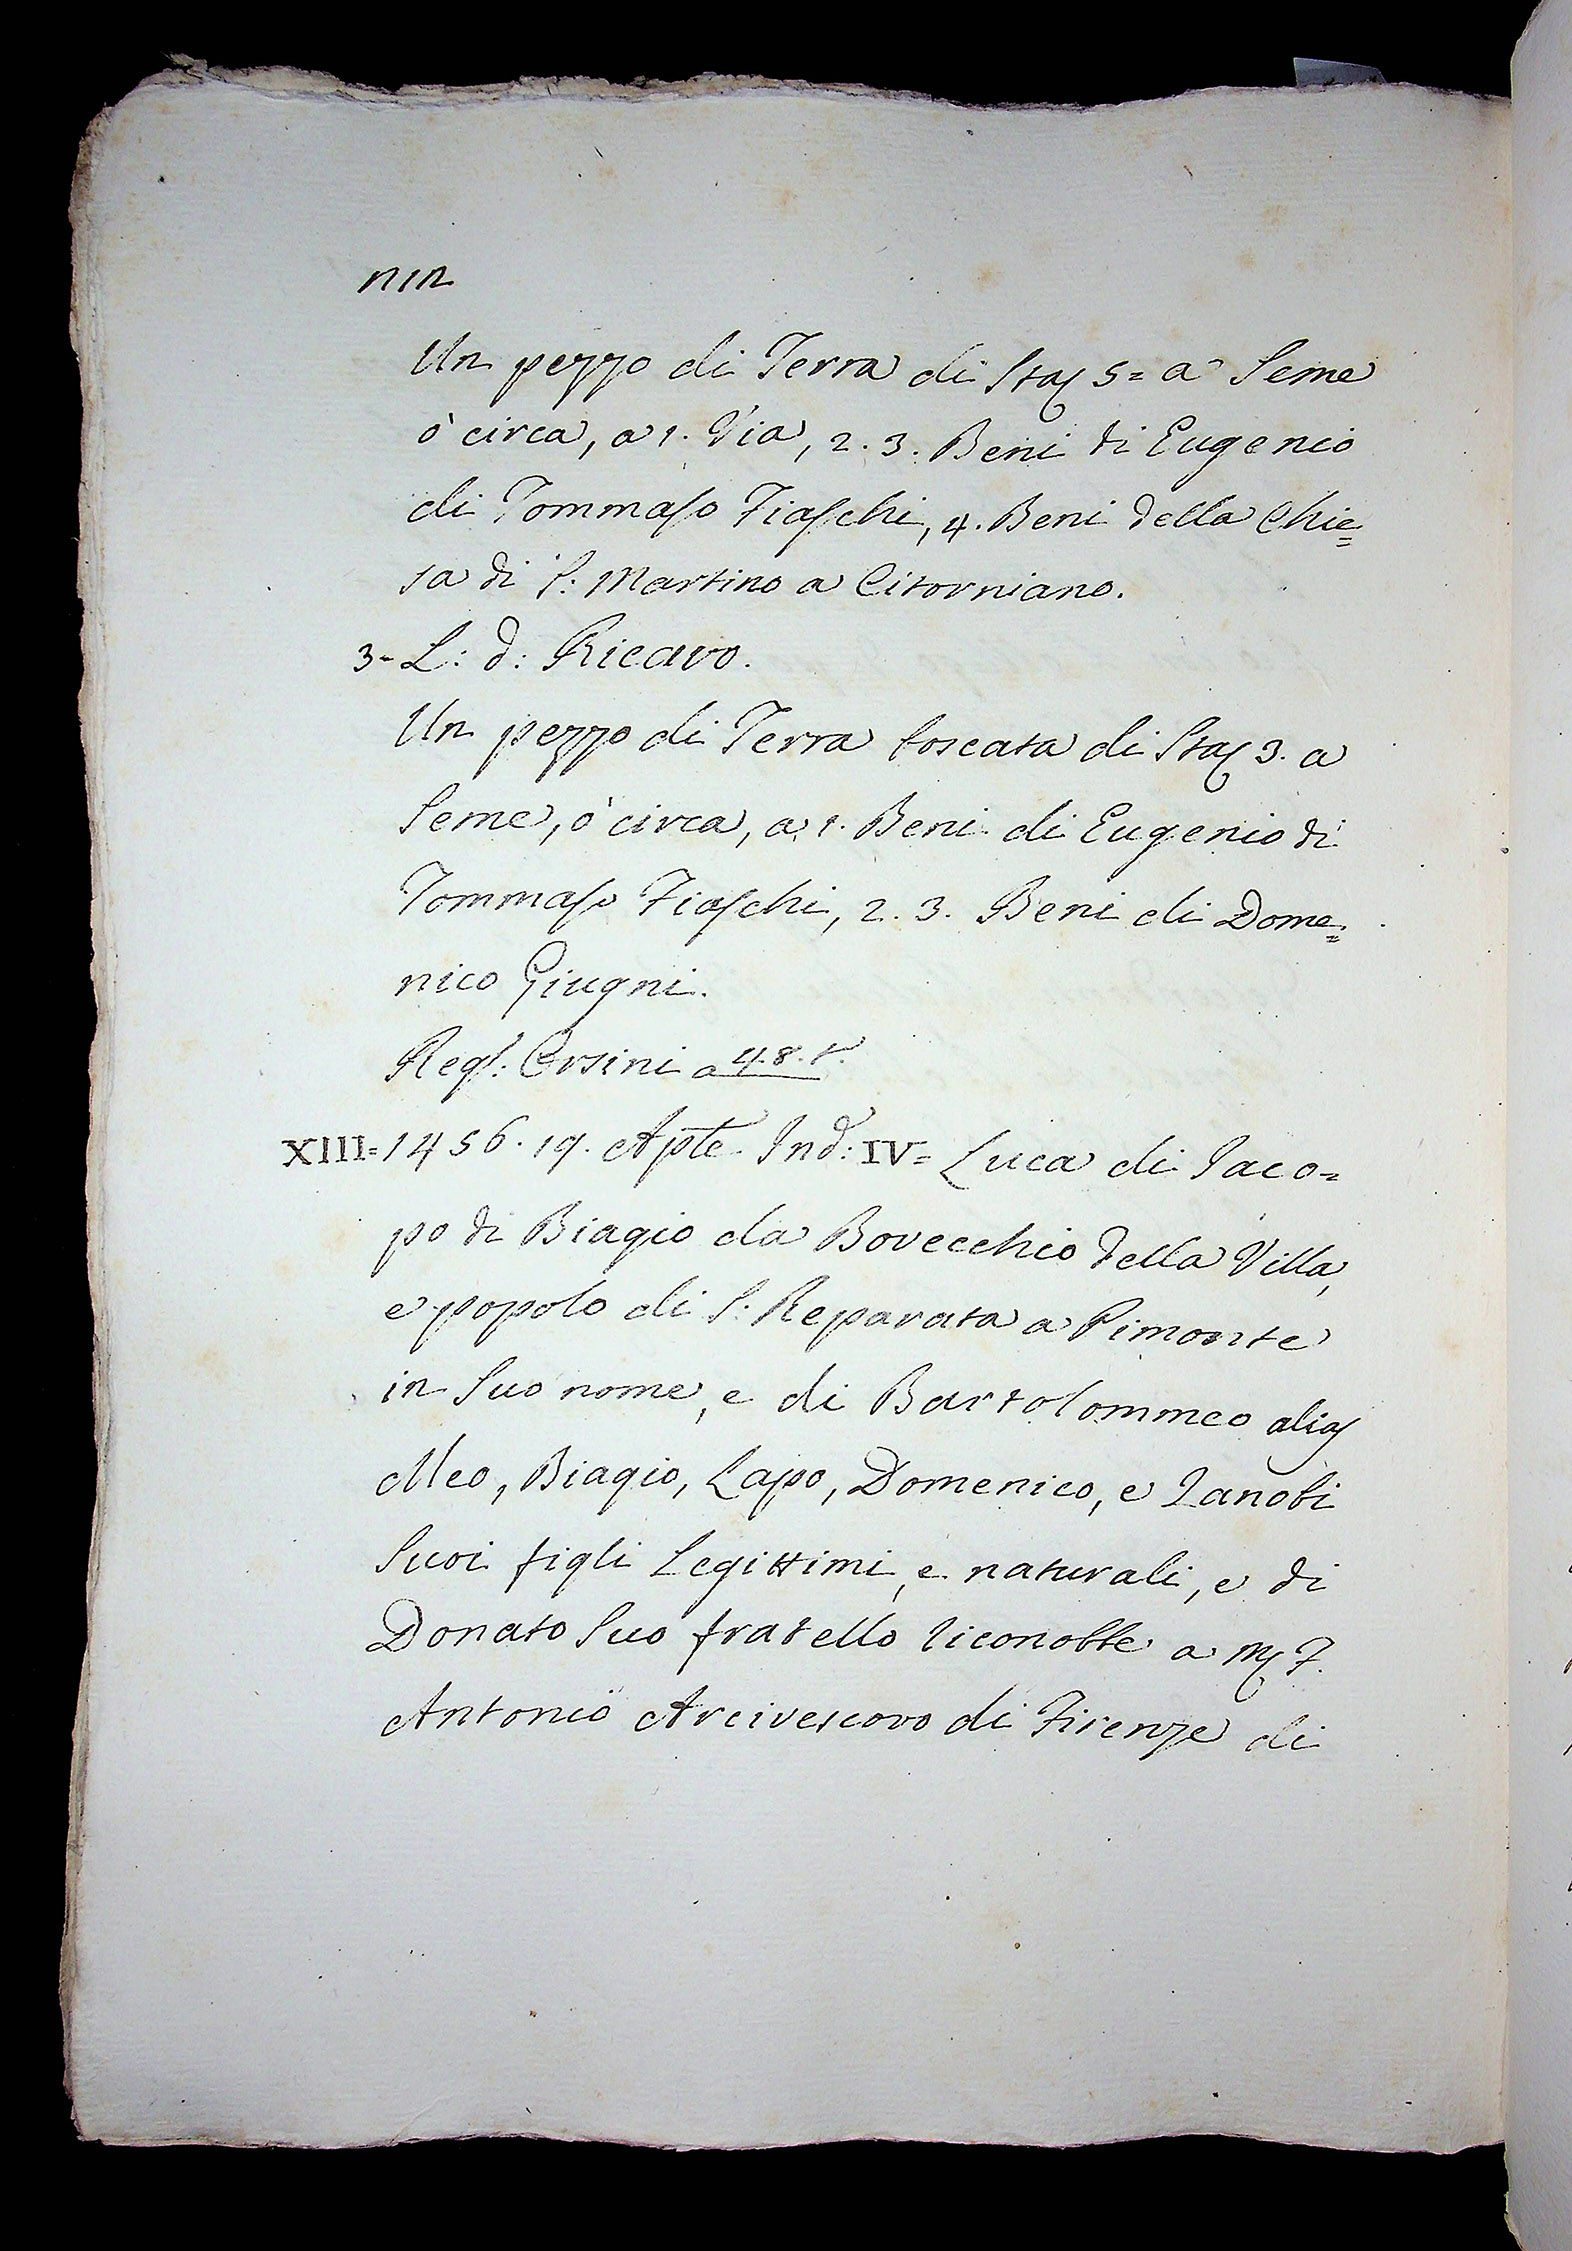 212
Un pezzo di Terra di Staj 5= a Seme
ò circa, a 1. Via, 2. 3. Beni di Eugenio
di Tommaso Fiaschi, 4. Beni della Chie=
sa di S: Martino a Citorniano.
3- L: d: Ricavo.
Un pezzo di Terra boscata di Staj 3. a
Seme, ò circa, a 1. Beni di Eugenio di
Tommaso Fiaschi, 2. 3. Beni di Dome=
nico Giugni.
Regs: Orsini a 48. t.
XIII= 1456. 19. Aple Ind: IV= Luca di Iaco=
po di Biagio da Bovecchio della Villa,
e popolo di S: Reparata a Pimonte
in Suo nome, e di Bartolommeo alias
Meo, Biagio, Lapo, Domenico, e Zanobi
Suoi figli Legittimi, e naturali, e di
Donato Suo fratello riconobbe a Ms F.
Antonio Arcivescovo di Firenze di